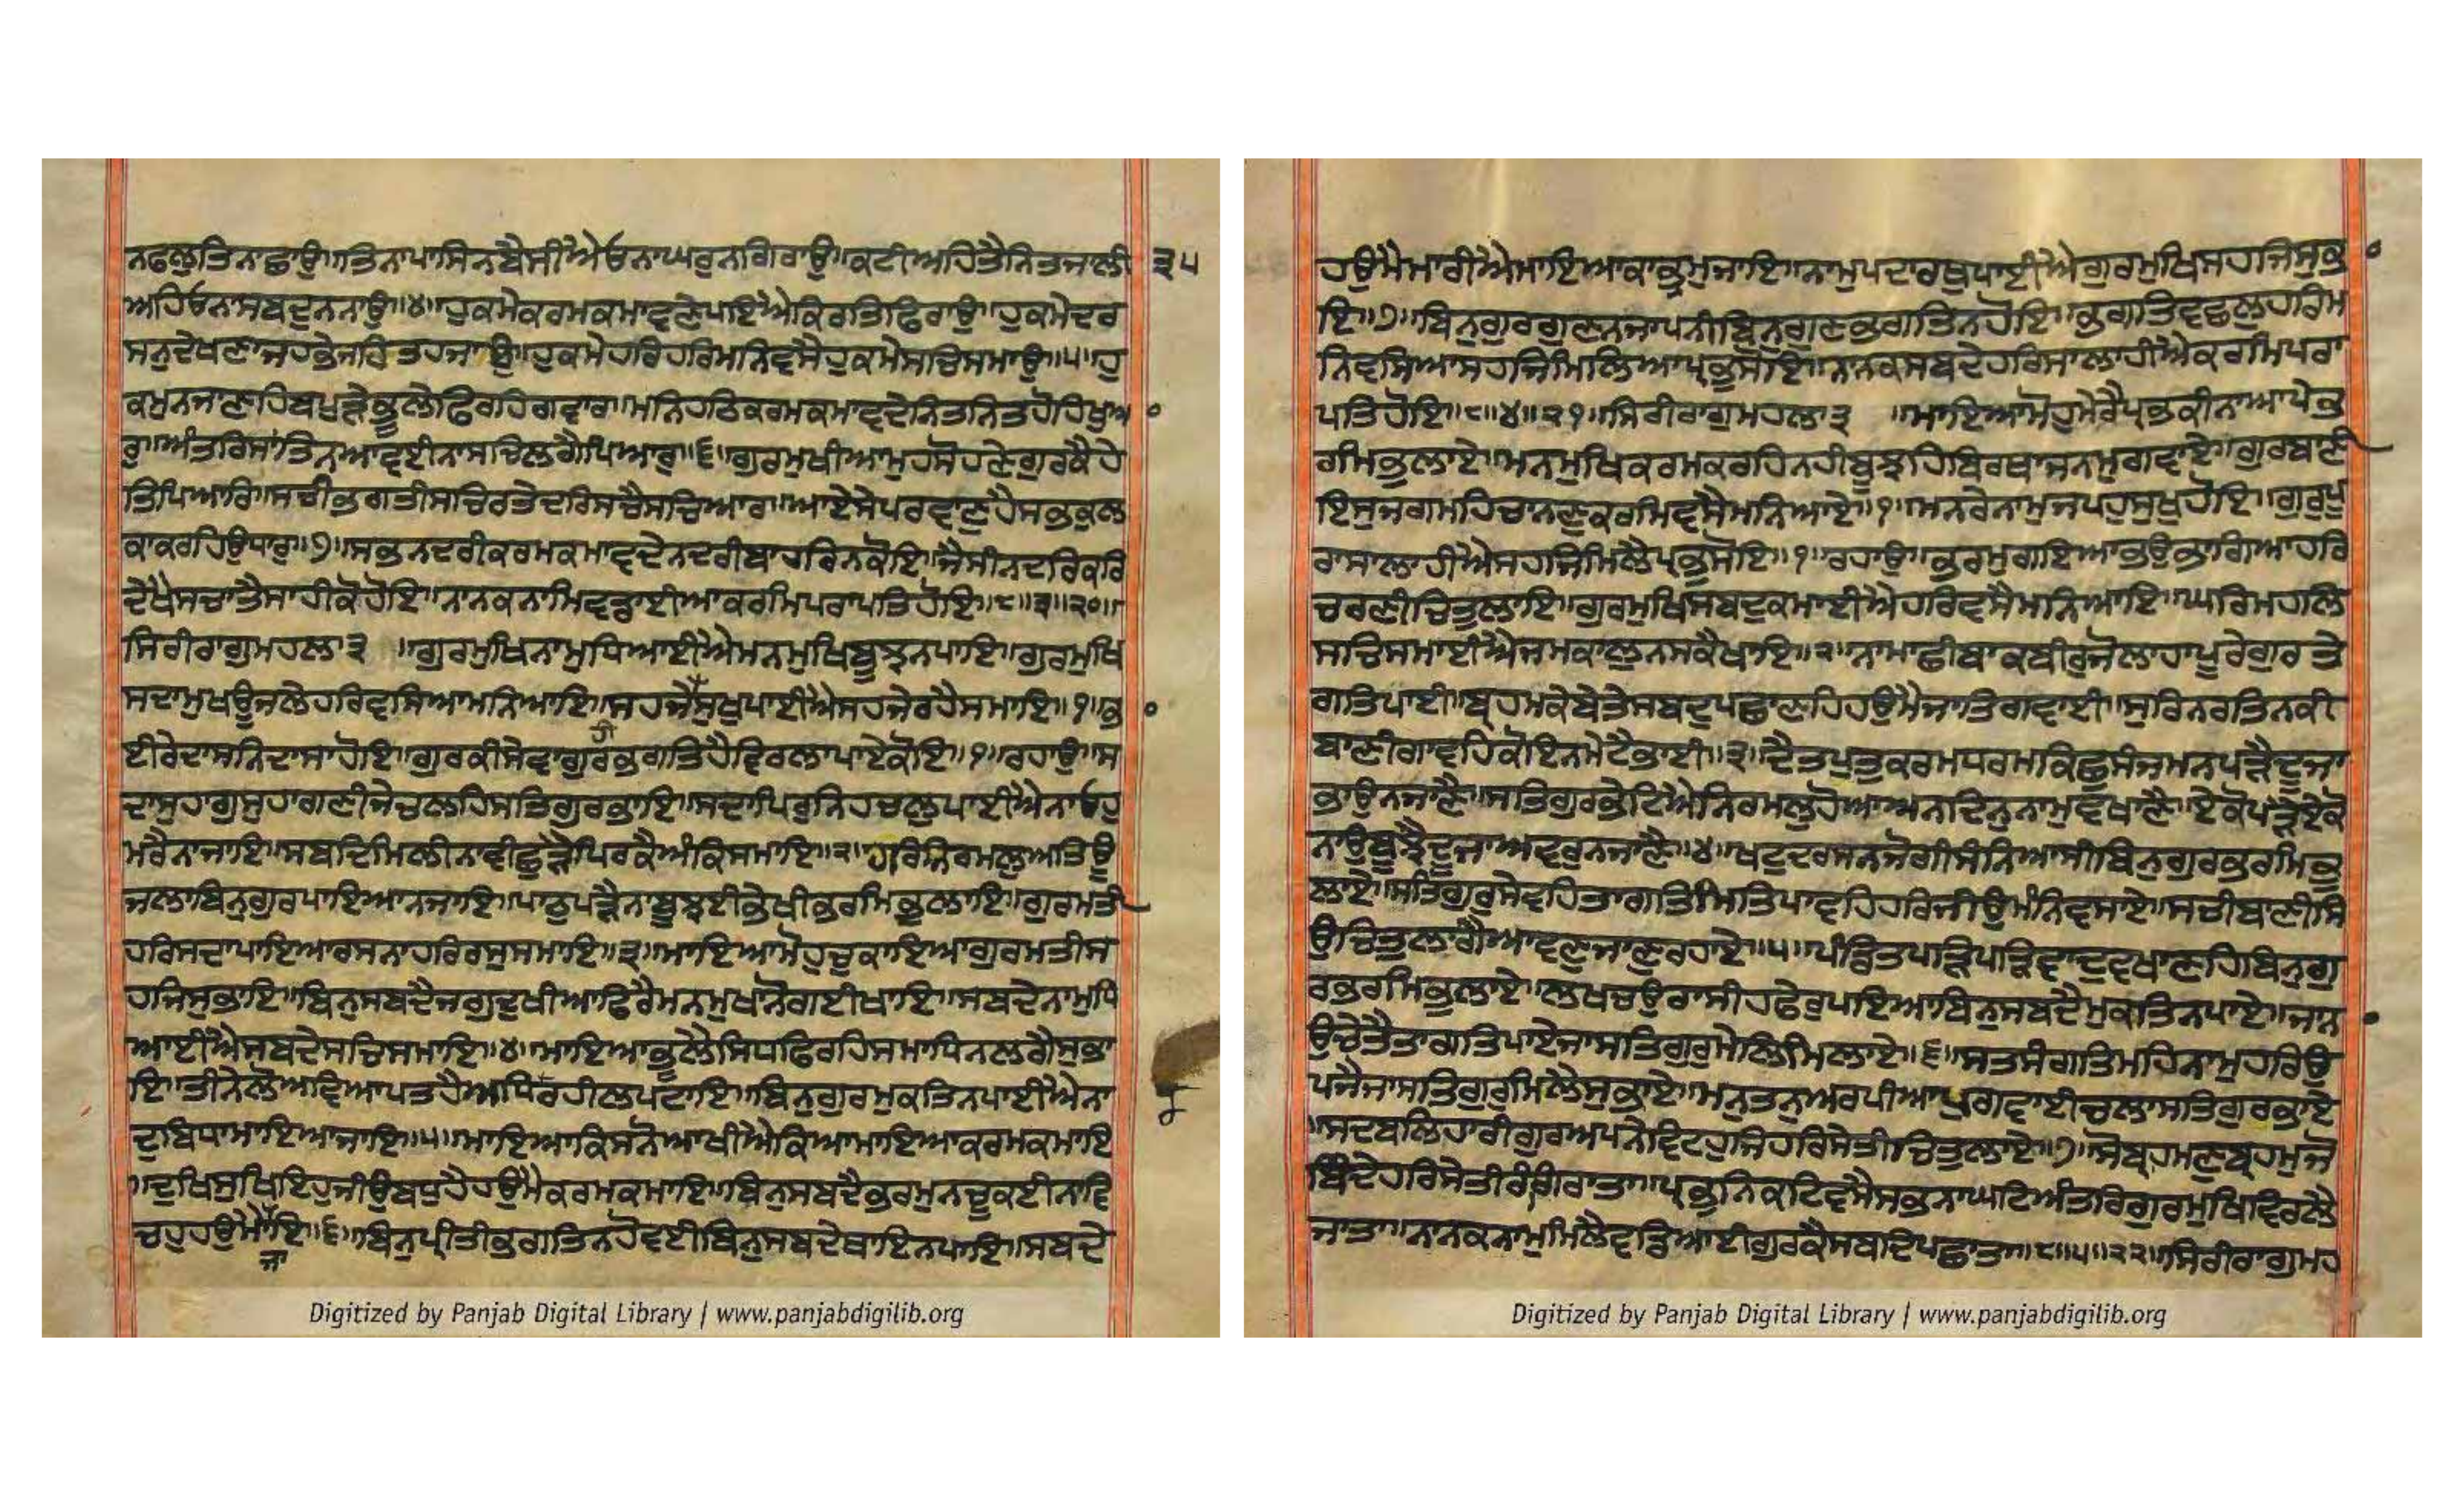 ਨਫਲੁਤਿਨਾਛਾਉ॥ਤਿਨਾਪਾਸਿਨਬੈਸੀਐਓਨਾਘਰੁਨਗਿਰਾਉ॥ਕਟੀਅਹਿਤੈਨਿਤਜਾਲੀ ੩੫
ਅਹਿਓਨਾਸਬਦੁਨਨਾਉ॥੪॥ਹੁਕਮੇਕਰਮਕਮਾਵਣੇਪਾਇਐਕਿਰਤਿਫਿਰਾਉ॥ਹੁਕਮੇਦਰ
ਸਨੁਦੇਖਣਾਜਹਭੇਜਹਿਤਹਜਾਉ॥ਹੁਕਮੇਹਰਿਹਰਿਮਨਿਵਸੈਹੁਕਮੇਸਚਿਸਮਾਉ॥੫॥ਹੁ
ਕਮੁਨਜਾਣਹਿਬਪੁੜੇਭੂਲੇਫਿਰਹਿਗਵਾਰ॥ਮਨਿਹਠਿਕਰਮਕਮਾਵਦੇਨਿਤਨਿਤਹੋਹਿਖੁਆ
ਰੁ॥ਅੰਤਰਿਸਾਂਤਿਨਆਵਈਨਾਸਚਿਲਗੈਪਿਆਰੁ॥੬॥ਗੁਰਮੁਖੀਆਮੁਹਸੋਹਣੇਗੁਰਕੈਹੇ
ਤਿਪਿਆਰਿ॥ਸਚੀਭਗਤੀਸਚਿਰਤੇਦਰਿਸਚੈਸਚਿਆਰ॥ਆਏਸੇਪਰਵਾਣੁਹੈਸਭਕੁਲ
ਕਾਕਰਹਿਉਧਾਰੁ॥੭॥ਸਭਨਦਰੀਕਰਮਕਮਾਵਦੇਨਦਰੀਬਾਹਰਿਨਕੋਇ॥ਜੈਸੀਨਦਰਿਕਰਿ
ਦੇਖੈਸਚਾਤੈਸਾਹੀਕੋਹੋਇ॥ਨਾਨਕਨਾਮਿਵਡਾਈਆਕਰਮਿਪਰਾਪਤਿਹੋਇ॥੮॥੩॥੨੦॥
ਸਿਰੀਰਾਗੁਮਹਲਾ੩ ॥ਗੁਰਮੁਖਿਨਾਮੁਧਿਆਈਐਮਨਮੁਖਿਬੂਝਨਪਾਇ॥ਗੁਰਮੁਖਿ
ਸਦਾਮੁਖਊਜਲੇਹਰਿਵਸਿਆਮਨਿਆਇ॥ਸਹਜੈਸੁਖੁਪਾਈਐਸਹਜੇਰਹੈਸਮਾਇ॥੧॥ਭਾ
ਈਰੇਦਾਸਨਿਦਾਸਾਹੋਇ॥ਗੁਰਕੀਸੇਵਾਗੁਰਭਗਤਿਹੈਵਿਰਲਾਪਾਏਕੋਇ॥੧॥ਰਹਾਉ॥ਸ
ਦਾਸੁਹਾਗੁਸੁਹਾਗਣੀਜੇਚਲਹਿਸਤਿਗੁਰਭਾਇ॥ਸਦਾਪਿਰੁਨਿਹਚਲੁਪਾਈਐਨਾਓਹੁ
ਮਰੈਨਾਜਾਇ॥ਸਬਦਿਮਿਲੀਨਾਵੀਛੁੜੈਪਿਰਕੈਅੰਕਿਸਮਾਇ॥੨॥ਹਰਿਨਿਰਮਲੁਅਤਿਊ
ਜਲਾਬਿਨੁਗੁਰਪਾਇਆਨਜਾਇ॥ਪਾਠੁਪੜੈਨਾਬੂਝਈਭੇਖੀਭਰਮਿਭੁਲਾਇ॥ਗੁਰਮਤੀ
ਹਰਿਸਦਾਪਾਇਆਰਸਨਾਹਰਿਰਸੁਸਮਾਇ॥੩॥ਮਾਇਆਮੋਹੁਚੁਕਾਇਆਗੁਰਮਤੀਸ
ਹਜਿਸੁਭਾਇ॥ਬਿਨੁਸਬਦੈਜਗੁਦੁਖੀਆਫਿਰੈਮਨਮੁਖਾਨੋਗਈਖਾਇ॥ਸਬਦੇਨਾਮੁਧਿ
ਆਈਐਸਬਦੇਸਚਿਸਮਾਇ॥੪॥ਮਾਇਆਭੂਲੇਸਿਧਫਿਰਹਿਸਮਾਧਿਨਲਗੈਸੁਭਾ
ਇ॥ਤੀਨੇਲੋਅਵਿਆਪਤਹੈਅਧਿਰਹੀਲਪਟਾਇ॥ਬਿਨੁਗੁਰਮੁਕਤਿਨਪਾਈਐਨਾ
ਦੁਬਿਧਾਮਾਇਆਜਾਇ॥੫॥ਮਾਇਆਕਿਸਨੋਆਖੀਐਕਿਆਮਾਇਆਕਰਮਕਮਾਇ
॥ਦੁਖਿਸੁਖਿਇਹੁਜੀਉਬਧੁਹੈਹਉਮੈਕਰਮਕਮਾਇ॥ਬਿਨੁਸਬਦੈਭਰਮੁਨਚੂਕਈਨਾਵਿ
ਚਹੁਹਉਮੈਜਾਇ॥੬॥ਬਿਨੁਪ੍ਰੀਤੀਭਗਤਿਨਹੋਵਈਬਿਨੁਸਬਦੇਥਾਇਨਪਾਇ॥ਸਬਦੇ
Digitized by Panjab Digital Library | www.panjabdigilib.org
ਹਉਮੈਮਾਰੀਐਮਾਇਆਕਾਭ੍ਰਮੁਜਾਇ॥ਨਾਮੁਪਦਾਰਥੁਪਾਈਐਗੁਰਮੁਖਿਸਹਜਿਸੁਭਾ
ਇ॥੭॥ਬਿਨੁਗੁਰਗੁਣਨਜਾਪਨੀਬਿਨੁਗੁਣਭਗਤਿਨਹੋਇ॥ਭਗਤਿਵਛਲੁਹਰਿਮ
ਨਿਵਸਿਆਸਹਜਿਮਿਲਿਆਪ੍ਰਭੁਸੋਇ॥ਨਾਨਕਸਬਦੇਹਰਿਸਾਲਾਹੀਐਕਰਮਿਪਰਾ
ਪਤਿਹੋਇ॥੮॥੪॥੨੧॥ਸਿਰੀਰਾਗੁਮਹਲਾ੩ ॥ਮਾਇਆਮੋਹੁਮੇਰੈਪ੍ਰਭਕੀਨਾਆਪੇਭ
ਰਮਿਭੁਲਾਏ॥ਮਨਮੁਖਿਕਰਮਕਰਹਿਨਹੀਬੂਝਹਿਬਿਰਥਾਜਨਮੁਗਵਾਏ॥ਗੁਰਬਾਣੀ
ਇਸੁਜਗਮਹਿਚਾਨਣੁਕਰਮਿਵਸੈਮਨਿਆਏ॥੧॥ਮਨਰੇਨਾਮੁਜਪਹੁਸੁਖੁਹੋਇ॥ਗੁਰੁਪੂ
ਰਾਸਾਲਾਹੀਐਸਹਜਿਮਿਲੈਪ੍ਰਭੁਸੋਇ॥੧॥ਰਹਾਉ॥ਭਰਮੁਗਇਆਭਉਭਾਗਿਆਹਰਿ
ਚਰਣੀਚਿਤੁਲਾਇ॥ਗੁਰਮੁਖਿਸਬਦੁਕਮਾਈਐਹਰਿਵਸੈਮਨਿਆਇ॥ਘਰਿਮਹਲਿ
ਸਚਿਸਮਾਈਐਜਮਕਾਲੁਨਸਕੈਖਾਇ॥੨॥ਨਾਮਾਛੀਬਾਕਬੀਰੁਜੋਲਾਹਾਪੂਰੇਗੁਰਤੇ
ਗਤਿਪਾਈ॥ਬ੍ਰਹਮਕੇਬੇਤੇਸਬਦੁਪਛਾਣਹਿਹਉਮੈਜਾਤਿਗਵਾਈ॥ਸੁਰਿਨਰਤਿਨਕੀ
ਬਾਣੀਗਾਵਹਿਕੋਇਨਮੇਟੈਭਾਈ॥੩॥ਦੈਤਪੁਤੁਕਰਮਧਰਮਕਿਛੁਸੰਜਮਨਪੜੈਦੂਜਾ
ਭਾਉਨਜਾਣੈ॥ਸਤਿਗੁਰਭੇਟਿਐਨਿਰਮਲੁਹੋਆਅਨਦਿਨੁਨਾਮੁਵਖਾਣੈ॥ਏਕੋਪੜੈਏਕੋ
ਨਾਉਬੂਝੈਦੂਜਾਅਵਰੁਨਜਾਣੈ॥੪॥ਖਟੁਦਰਸਨਜੋਗੀਸੰਨਿਆਸੀਬਿਨੁਗੁਰਭਰਮਿਭੁ
ਲਾਏ॥ਸਤਿਗੁਰੁਸੇਵਹਿਤਾਗਤਿਮਿਤਿਪਾਵਹਿਹਰਿਜੀਉਮੰਨਿਵਸਾਏ॥ਸਚੀਬਾਣੀਸਿ
ਉਚਿਤੁਲਾਗੈਆਵਣੁਜਾਣੁਰਹਾਏ॥੫॥ਪੰਡਿਤਪੜਿਪੜਿਵਾਦੁਵਖਾਣਹਿਬਿਨੁਗੁ
ਰਭਰਮਿਭੁਲਾਏ॥ਲਖਚਉਰਾਸੀਹਫੇਰੁਪਇਆਬਿਨੁਸਬਦੈਮੁਕਤਿਨਪਾਏ॥ਜਾਨਾ
ਉਚੇਤੈਤਾਗਤਿਪਾਏਜਾਸਤਿਗੁਰੁਮੇਲਿਮਿਲਾਏ॥੬॥ਸਤਸੰਗਤਿਮਹਿਨਾਮੁਹਰਿਉ
ਪਜੈਜਾਸਤਿਗੁਰੁਮਿਲੈਸੁਭਾਏ॥ਮਨੁਤਨੁਅਰਪੀਆਪੁਗਵਾਈਚਲਾਸਤਿਗੁਰਭਾਏ
॥ਸਦਬਲਿਹਾਰੀਗੁਰਅਪਨੇਵਿਟਹੁਜਿਹਰਿਸੇਤੀਚਿਤੁਲਾਏ॥੭॥ਸੋਬ੍ਰਹਮਣੁਬ੍ਰਹਮੁਜੋ
ਬਿੰਦੇਹਰਿਸੇਤੀਰੰਗਿਰਾਤਾ॥ਪ੍ਰਭੁਨਿਕਟਿਵਸੈਸਭਨਾਘਟਿਅੰਤਰਿਗੁਰਮੁਖਿਵਿਰਲੈ
ਜਾਤਾ॥ਨਾਨਕਨਾਮੁਮਿਲੈਵਡਿਆਈਗੁਰਕੈਸਬਦਿਪਛਾਤਾ॥੮॥੫॥੨੨॥ਸਿਰੀਰਾਗੁਮਹ
Digitized by Panjab Digital Library | www.panjabdigilib.org